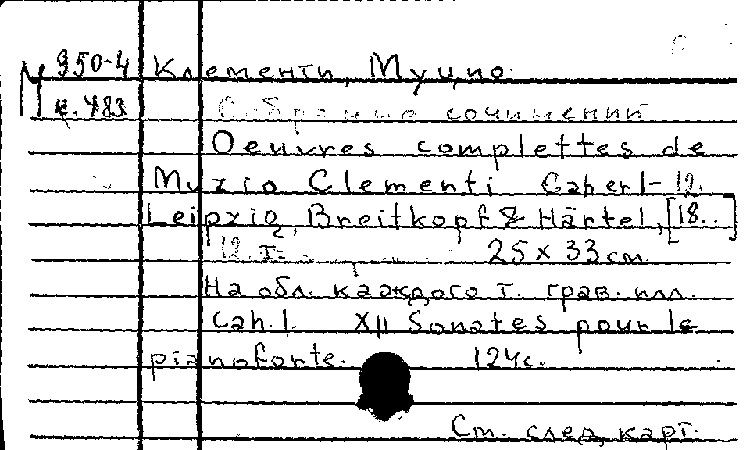 М 950-4 Клементи, Муцио.
к. 783 Собрание сочинений
Oeuvres complettes de
Muzio Clementi Caher 1-12.
Leipzig, Breitkopf & Härtel, [18..]
12 т. 25 x 33 см.
На обл. каждого т. грав. илл.
Cah.1. XII Sonates pour le
pianoforte. 124 с.
См. след. карт.